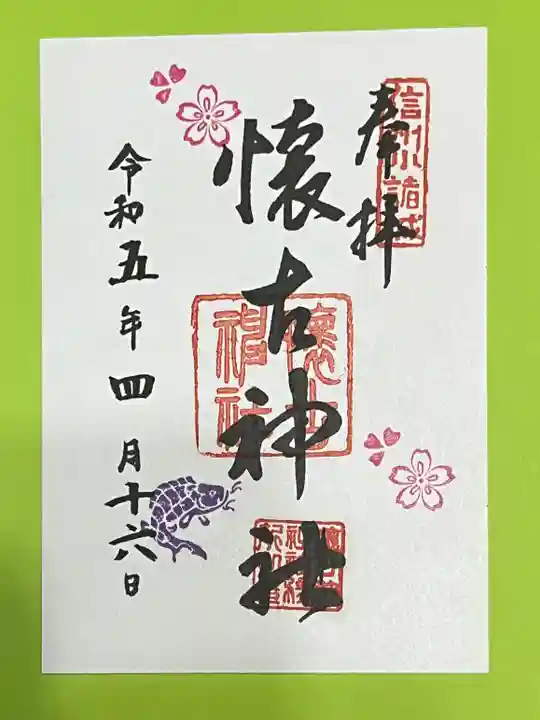 奉拝
信州小諸城
懐古神社
懐古神社
令和五年四月十六日